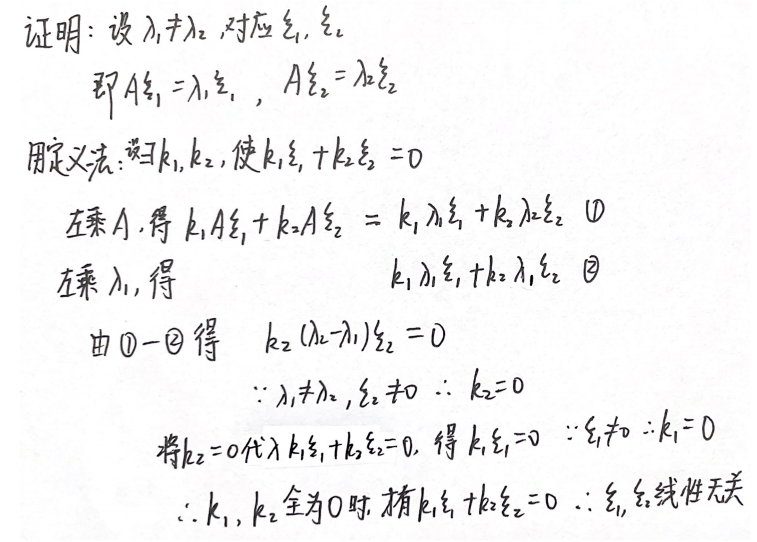 证明: 设 λ₁≠λ₂, 对应 ξ₁, ξ₂
即 Aξ₁ = λ₁ξ₁ , Aξ₂ = λ₂ξ₂
用定义法: 设∃k₁, k₂, 使 k₁ξ₁ + k₂ξ₂ = 0
左乘 A, 得 k₁Aξ₁ + k₂Aξ₂ = k₁λ₁ξ₁ + k₂λ₂ξ₂ ①
左乘 λ₁, 得 k₁λ₁ξ₁ + k₂λ₁ξ₂ ②
由 ①-② 得 k₂(λ₂-λ₁)ξ₂ = 0
∵ λ₁≠λ₂, ξ₂≠0 ∴ k₂=0
将k₂=0代入 k₁ξ₁+k₂ξ₂=0, 得 k₁ξ₁=0 ∵ ξ₁≠0 ∴ k₁=0
∴ k₁, k₂ 全为0时, 才有 k₁ξ₁+k₂ξ₂=0 ∴ ξ₁, ξ₂线性无关